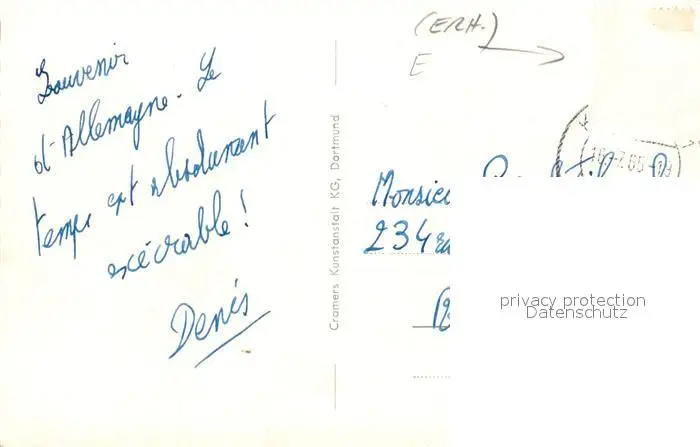 (ERH.)
E
Souvenir
d'Allemagne. Le
temps est absolument
exécrable !
Denis
Cramers Kunstanstalt KG, Dortmund
Monsieu
234
privacy protection
Datenschutz